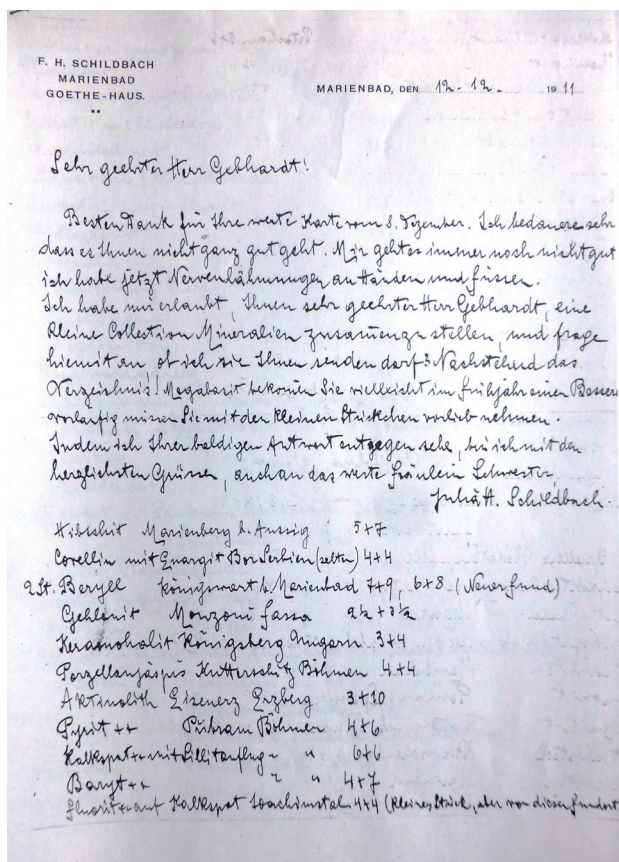 F. H. SCHILDBACH
MARIENBAD
GOETHE-HAUS.
MARIENBAD, DEN 12.-12.- 1911
Sehr geehrter Herr Gebhardt!
Besten Dank für Ihre werte Karte vom 8. Dezember. Ich bedauere sehr
dass es Ihnen nicht ganz gut geht. Mir geht es immer noch nicht gut
ich habe jetzt Nervenlähmungen an Händen und füssen.
Ich habe mir erlaubt, Ihnen sehr geehrter Herr Gebhardt, eine
kleine Collection Mineralien zusammenzustellen, und frage
hiemit an ob ich sie Ihnen senden darf? Nachstehend das
Verzeichnis! Megabasit bekommen Sie vielleicht im frühjahr einen Bessern
vorläufig müssen Sie mit der kleinen Stückchen vorlieb nehmen.
Indem ich Ihrer baldigen Antwort entgegen sehe, bin ich mit den
herzlichsten Grüssen, auch an das werte fräulein Schwester,
H. Schildbach.
Hibschit Marienberg b. Aussig 5+7
Covellin mit Enargit Bor Serbien (selten) 4+4
2 St. Beryll Königswart b. Marienbad 7+9, 6+8 (Neuer fund)
Gehlenit Monzoni fassa 2½ + 3½
Keramohalit Königsberg Ungarn 3+4
Porzellanjaspis Kutterschitz Böhmen 4+4
Aktinolith Eisenerz Erzberg 3+10
Pyrit ++ Pribram Böhmen 4+6
Kalkspat ++ mit Anflug - " 6+6
Baryt ++ " " 4+7
fluorit ++ auf Kalkspat Joachimstal 4+4 (kleines Stück, aber von diesem fundort